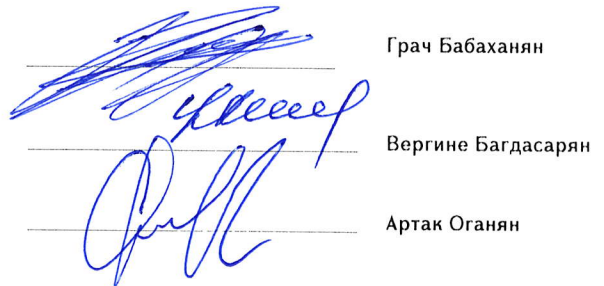 Грач Бабаханян
Вергине Багдасарян
Артак Оганян